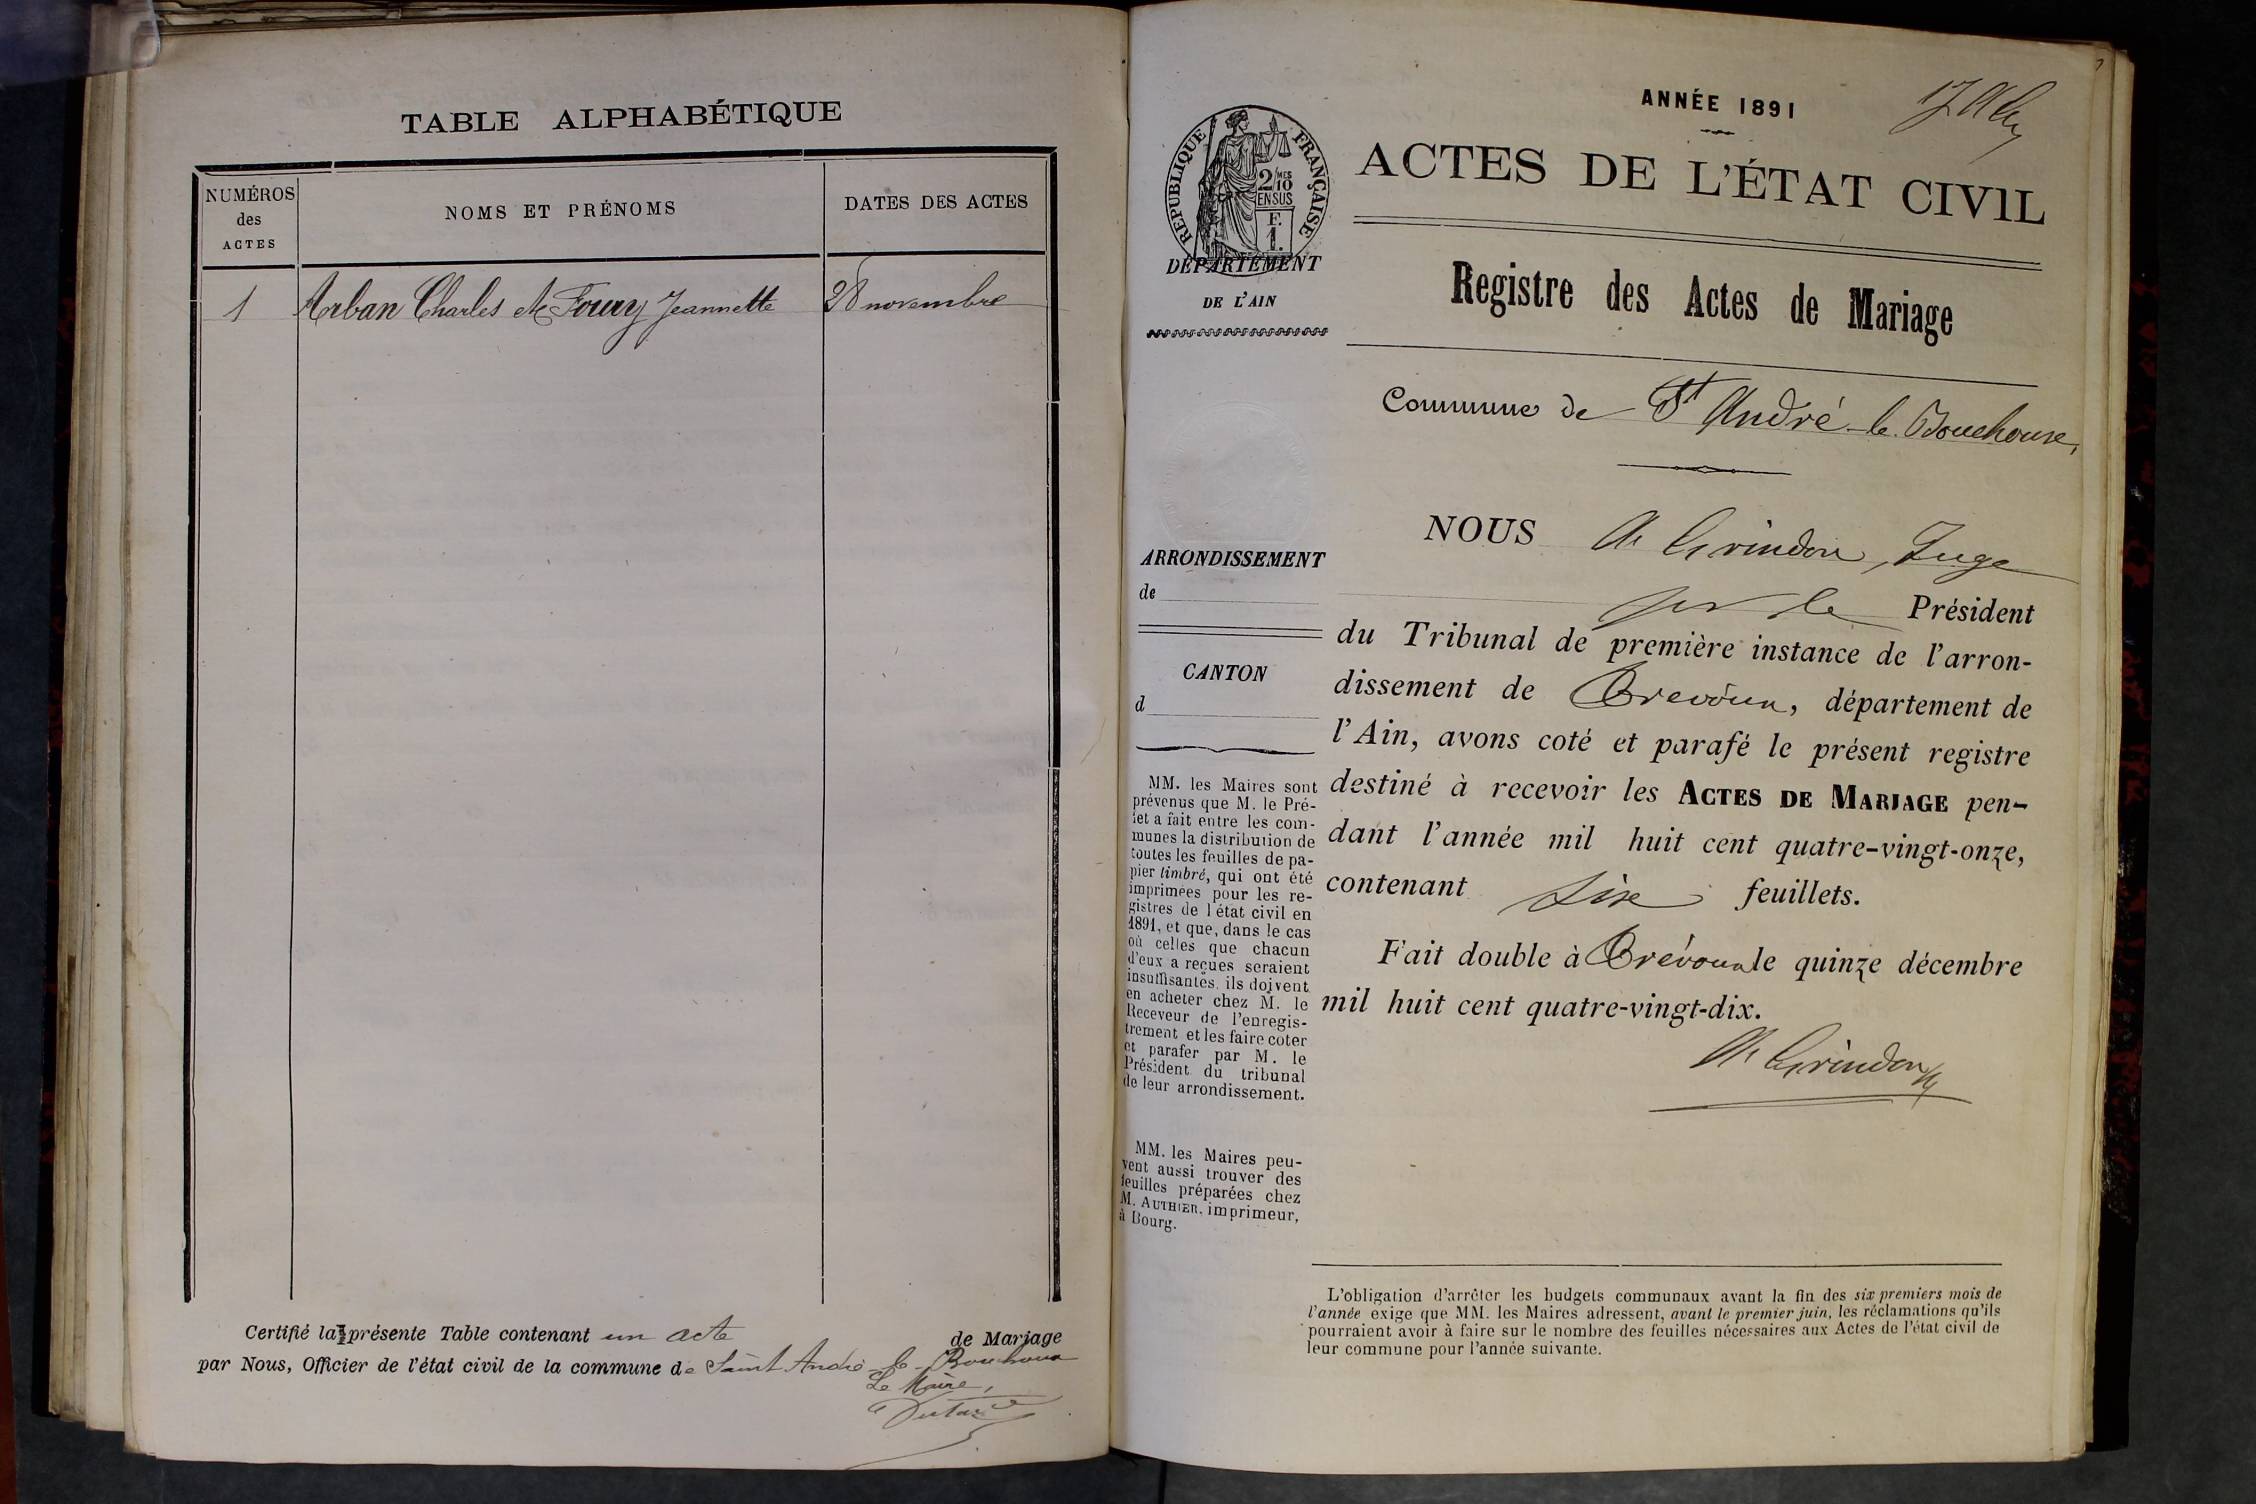 TABLE ALPHABÉTIQUE
NUMÉROS des ACTES
NOMS ET PRÉNOMS
DATES DES ACTES
1 Arban Charles et Foury Jeannette 28 novembre
Certifié la présente Table contenant un acte de Mariage
par Nous, Officier de l'état civil de la commune de Saint André-le-Bouchoux
Le Maire,
ANNÉE 1891
ACTES DE L'ÉTAT CIVIL
RÉPUBLIQUE FRANÇAISE
2/10 MES
EN SUS
F.
1.
DÉPARTEMENT
DE L'AIN
Registre des Actes de Mariage
Commune de St André-le-Bouchoux,
ARRONDISSEMENT
de
CANTON
d
MM. les Maires sont
prévenus que M. le Pré-
fet a fait entre les com-
munes la distribution de
toutes les feuilles de pa-
pier timbré, qui ont été
imprimées pour les re-
gistres de l'état civil en
1891, et que, dans le cas
où celles que chacun
d'eux a reçues seraient
insuffisantes, ils doivent
en acheter chez M. le
Receveur de l'enregis-
trement et les faire coter
et parafer par M. le
Président du tribunal
de leur arrondissement.
MM. les Maires peu-
vent aussi trouver des
feuilles préparées chez
M. AUTHIER, imprimeur,
à Bourg.
NOUS A. Grindon, Juge
pr le Président
du Tribunal de première instance de l'arron-
dissement de Trévoux, département de
l'Ain, avons coté et parafé le présent registre
destiné à recevoir les ACTES DE MARIAGE pen-
dant l'année mil huit cent quatre-vingt-onze,
contenant six feuillets.
Fait double à Trévoux le quinze décembre
mil huit cent quatre-vingt-dix.
A. Grindon
L'obligation d'arrêter les budgets communaux avant la fin des six premiers mois de
l'année exige que MM. les Maires adressent, avant le premier juin, les réclamations qu'ils
pourraient avoir à faire sur le nombre des feuilles nécessaires aux Actes de l'état civil de
leur commune pour l'année suivante.